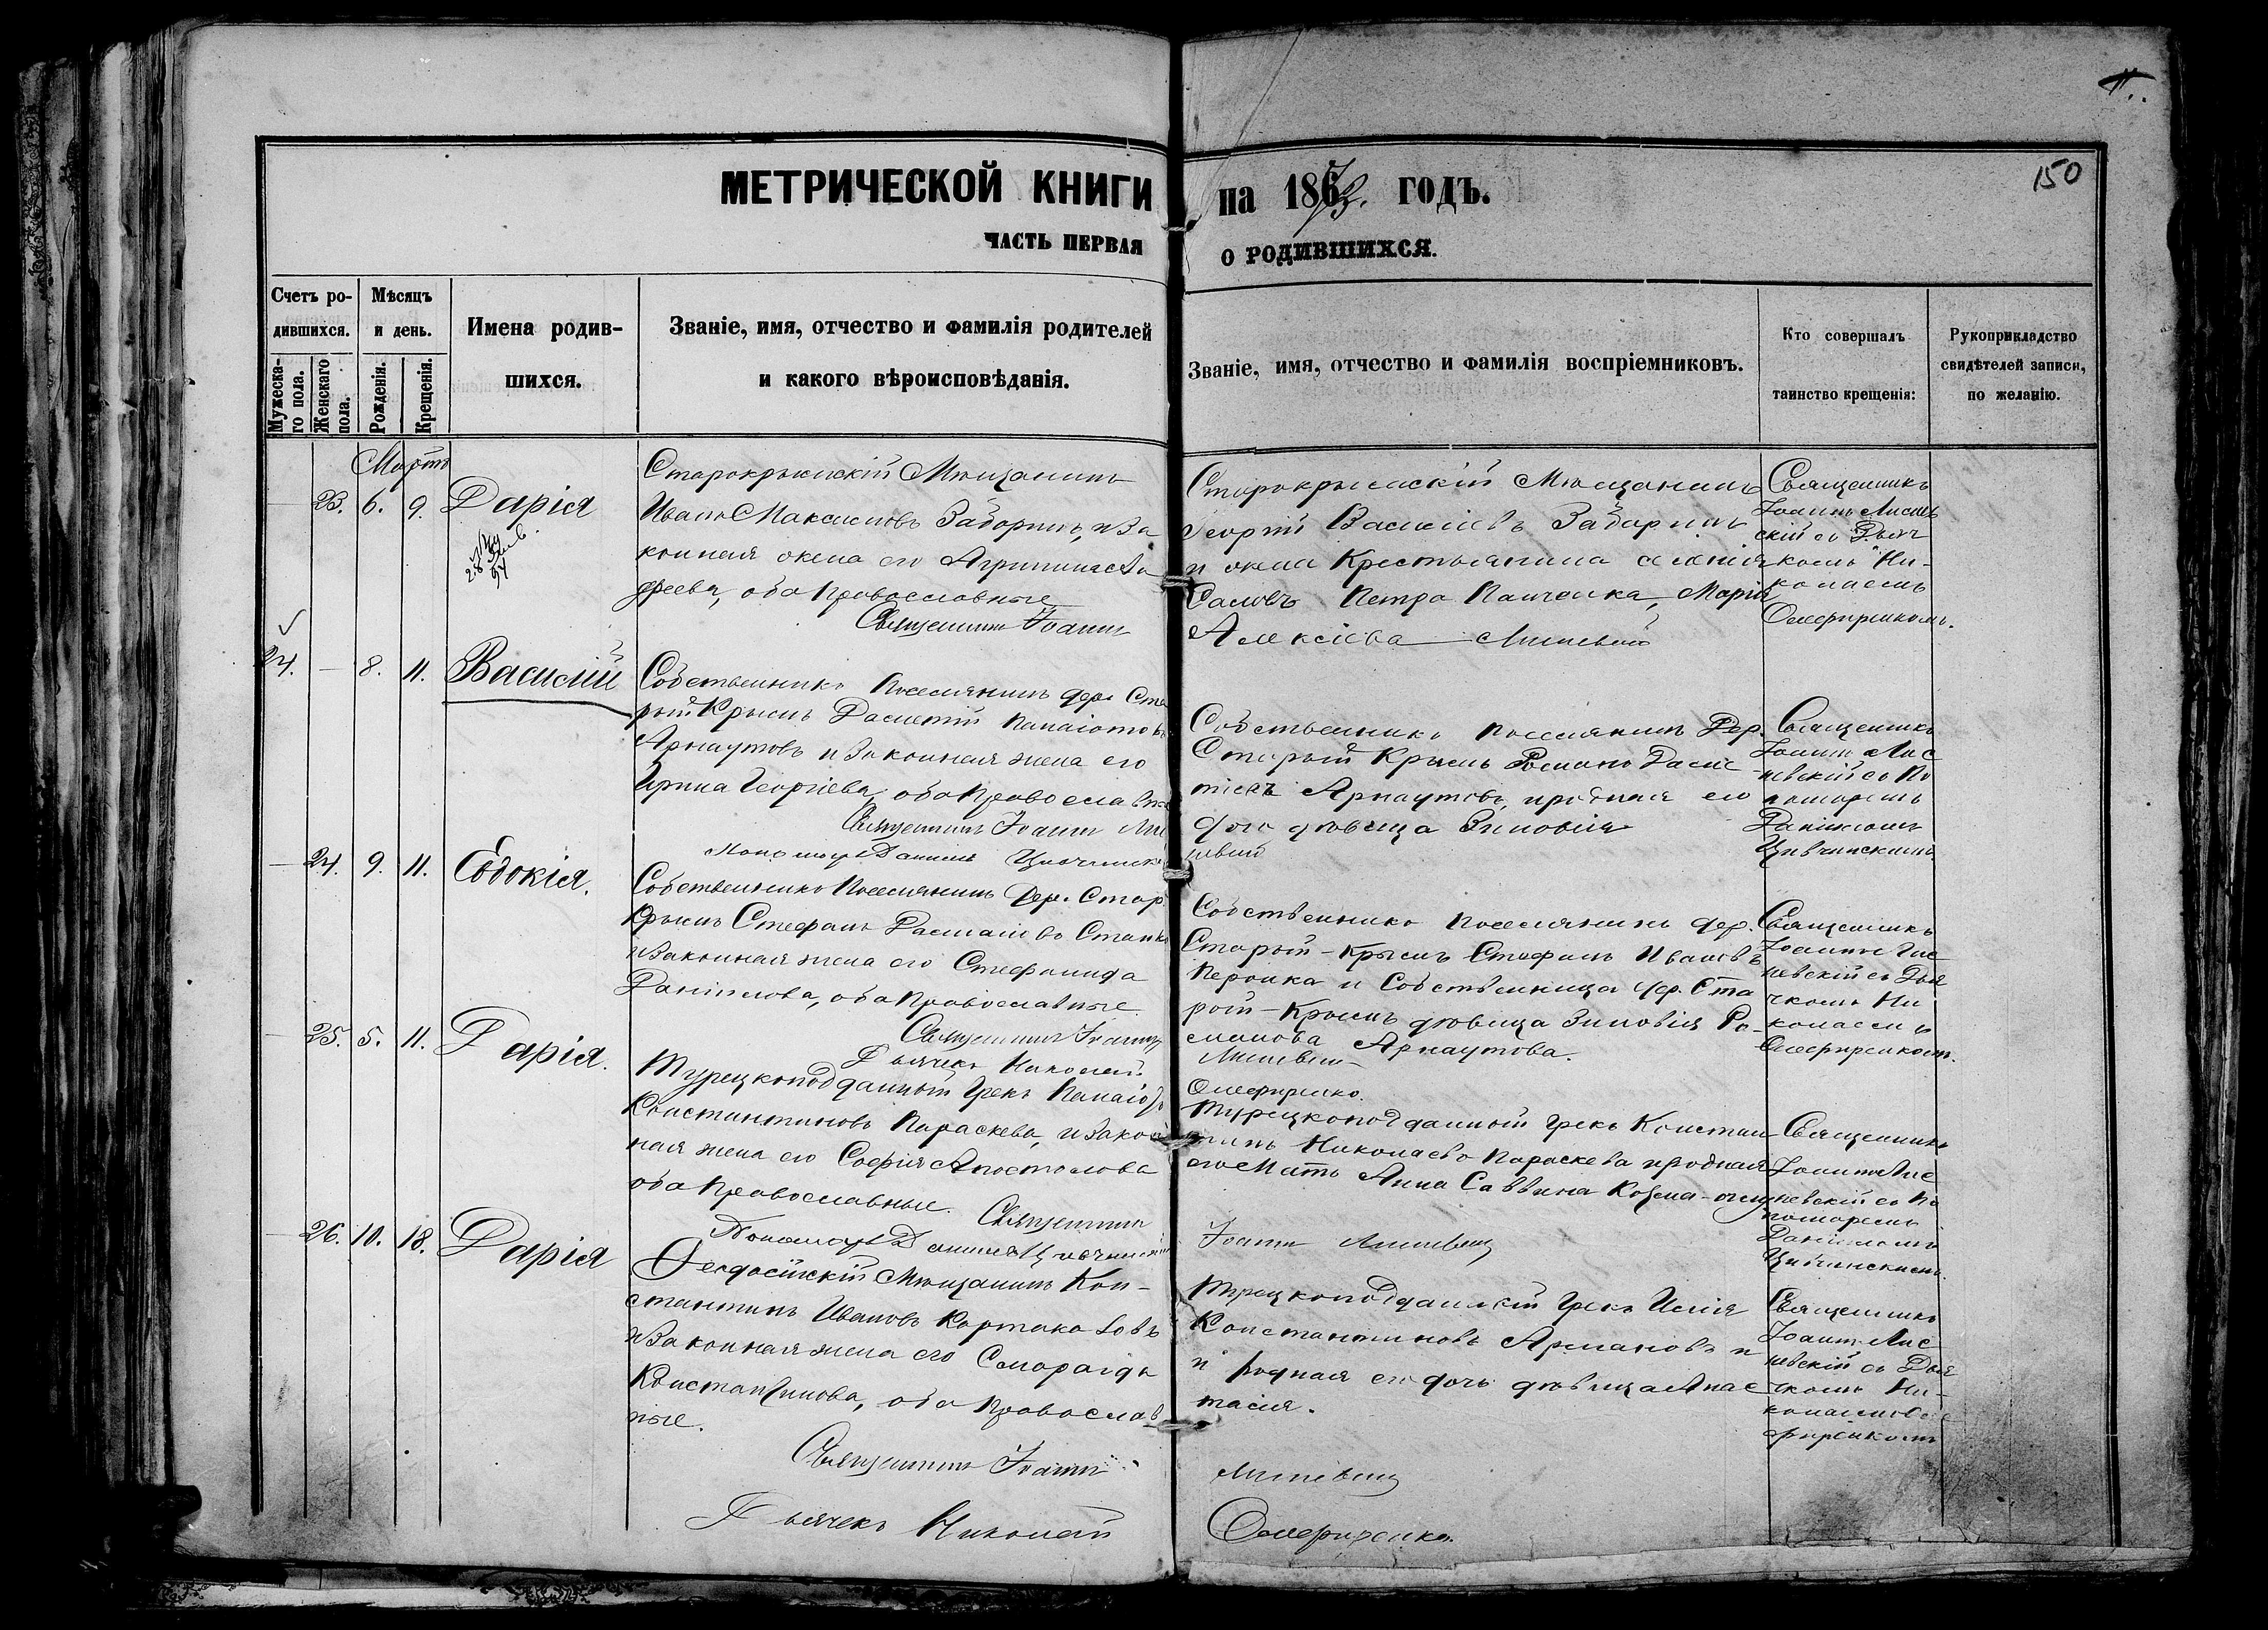 150
МЕТРИЧЕСКОЙ КНИГИ на 1873. ГОДЪ.
ЧАСТЬ ПЕРВАЯ О РОДИВШИХСЯ.
Счетъ ро-
дившихся.
Мужеска-
го пола.
Женскаго
пола.
Мѣсяцъ
и день.
Рожденія.
Крещенія.
Имена родив-
шихся.
Званіе, имя, отчество и фамилія родителей
и какого вѣроисповѣданія.
Званіе, имя, отчество и фамилія воспріемниковъ.
Кто совершалъ
таинство крещенія:
Рукоприкладство
свидѣтелей записи,
по желанію.
Мартъ
23. 6. 9. Дарія
Старокрымскій Мѣщанинъ
Иванъ Максимовъ Заборинъ, и за
конная жена его Агрипина
феева, оба Православные
Священникъ Іоаннъ
Старокрымскій Мѣщанинъ
Георгій Василіевъ Заборинъ
и жена Крестьянина селенія
Саловъ Петра Панченка, Марія
Алексіева
Священникъ
Іоаннъ
скій съ Дьяч
комъ Ни-
колаемъ
Олефиренкомъ.
24. — 8. 11. Василій
Собственникъ Поселянинъ дер. Ста
рый Крымъ Панаіотовъ
Арнаутовъ и законная жена его
Ирина Георгіева, оба Православные
Священникъ Іоаннъ
Пономарь Даніилъ
Собственникъ поселянинъ Дер.
Старый Крымъ
Арнаутовъ, и родная его
дочь дѣвица Зиновія
Священникъ
Іоаннъ Лис
невскій съ По
номаремъ
Даніиломъ
Цивчинскимъ.
— 24. 9. 11. Евдокія.
Собственникъ Поселянинъ Дер. Стар.
Крымъ Стефанъ
и законная жена его Стефанида
Даніилова, оба Православные.
Священникъ Іоаннъ
Дьячекъ Николай
Собственникъ поселянинъ дер.
Старый-Крымъ Стефанъ Ивановъ
и Собственница дер. Ста
рый-Крымъ дѣвица Зиновія Ро-
манова Арнаутова.
Олефиренко.
Священникъ
Іоаннъ Лис
невскій съ Дья
чкомъ Ни
колаемъ
Олефиренкомъ.
— 25. 5. 11. Дарія.
Турецкоподданный Грекъ Панаіотъ
Константиновъ Параскева, и закон
ная жена его Софія Апостолова
оба Православные. Священникъ
Пономарь Даніилъ
Турецкоподданной Грекъ Констан
тинъ Николаевъ Параскева и родная
его Мать Анна Саввина
Іоаннъ
Священникъ
Іоаннъ Лис
невскій съ По
номаремъ
Даніиломъ
Цивчинскимъ.
— 26. 10. 18. Дарія
Ѳеодосійскій Мѣщанинъ Кон-
стантинъ Ивановъ
и законная жена его Смарагда
Константинова, оба Православ
ные.
Священникъ Іоаннъ
Дьячекъ Николай
Грекъ Илія
Константиновъ и
и родная его дочь дѣвица Анас
тасія.
Олефиренко.
Священникъ
Іоаннъ Лис
невскій съ Дья
чкомъ Ни-
колаемъ Оле
фиренкомъ